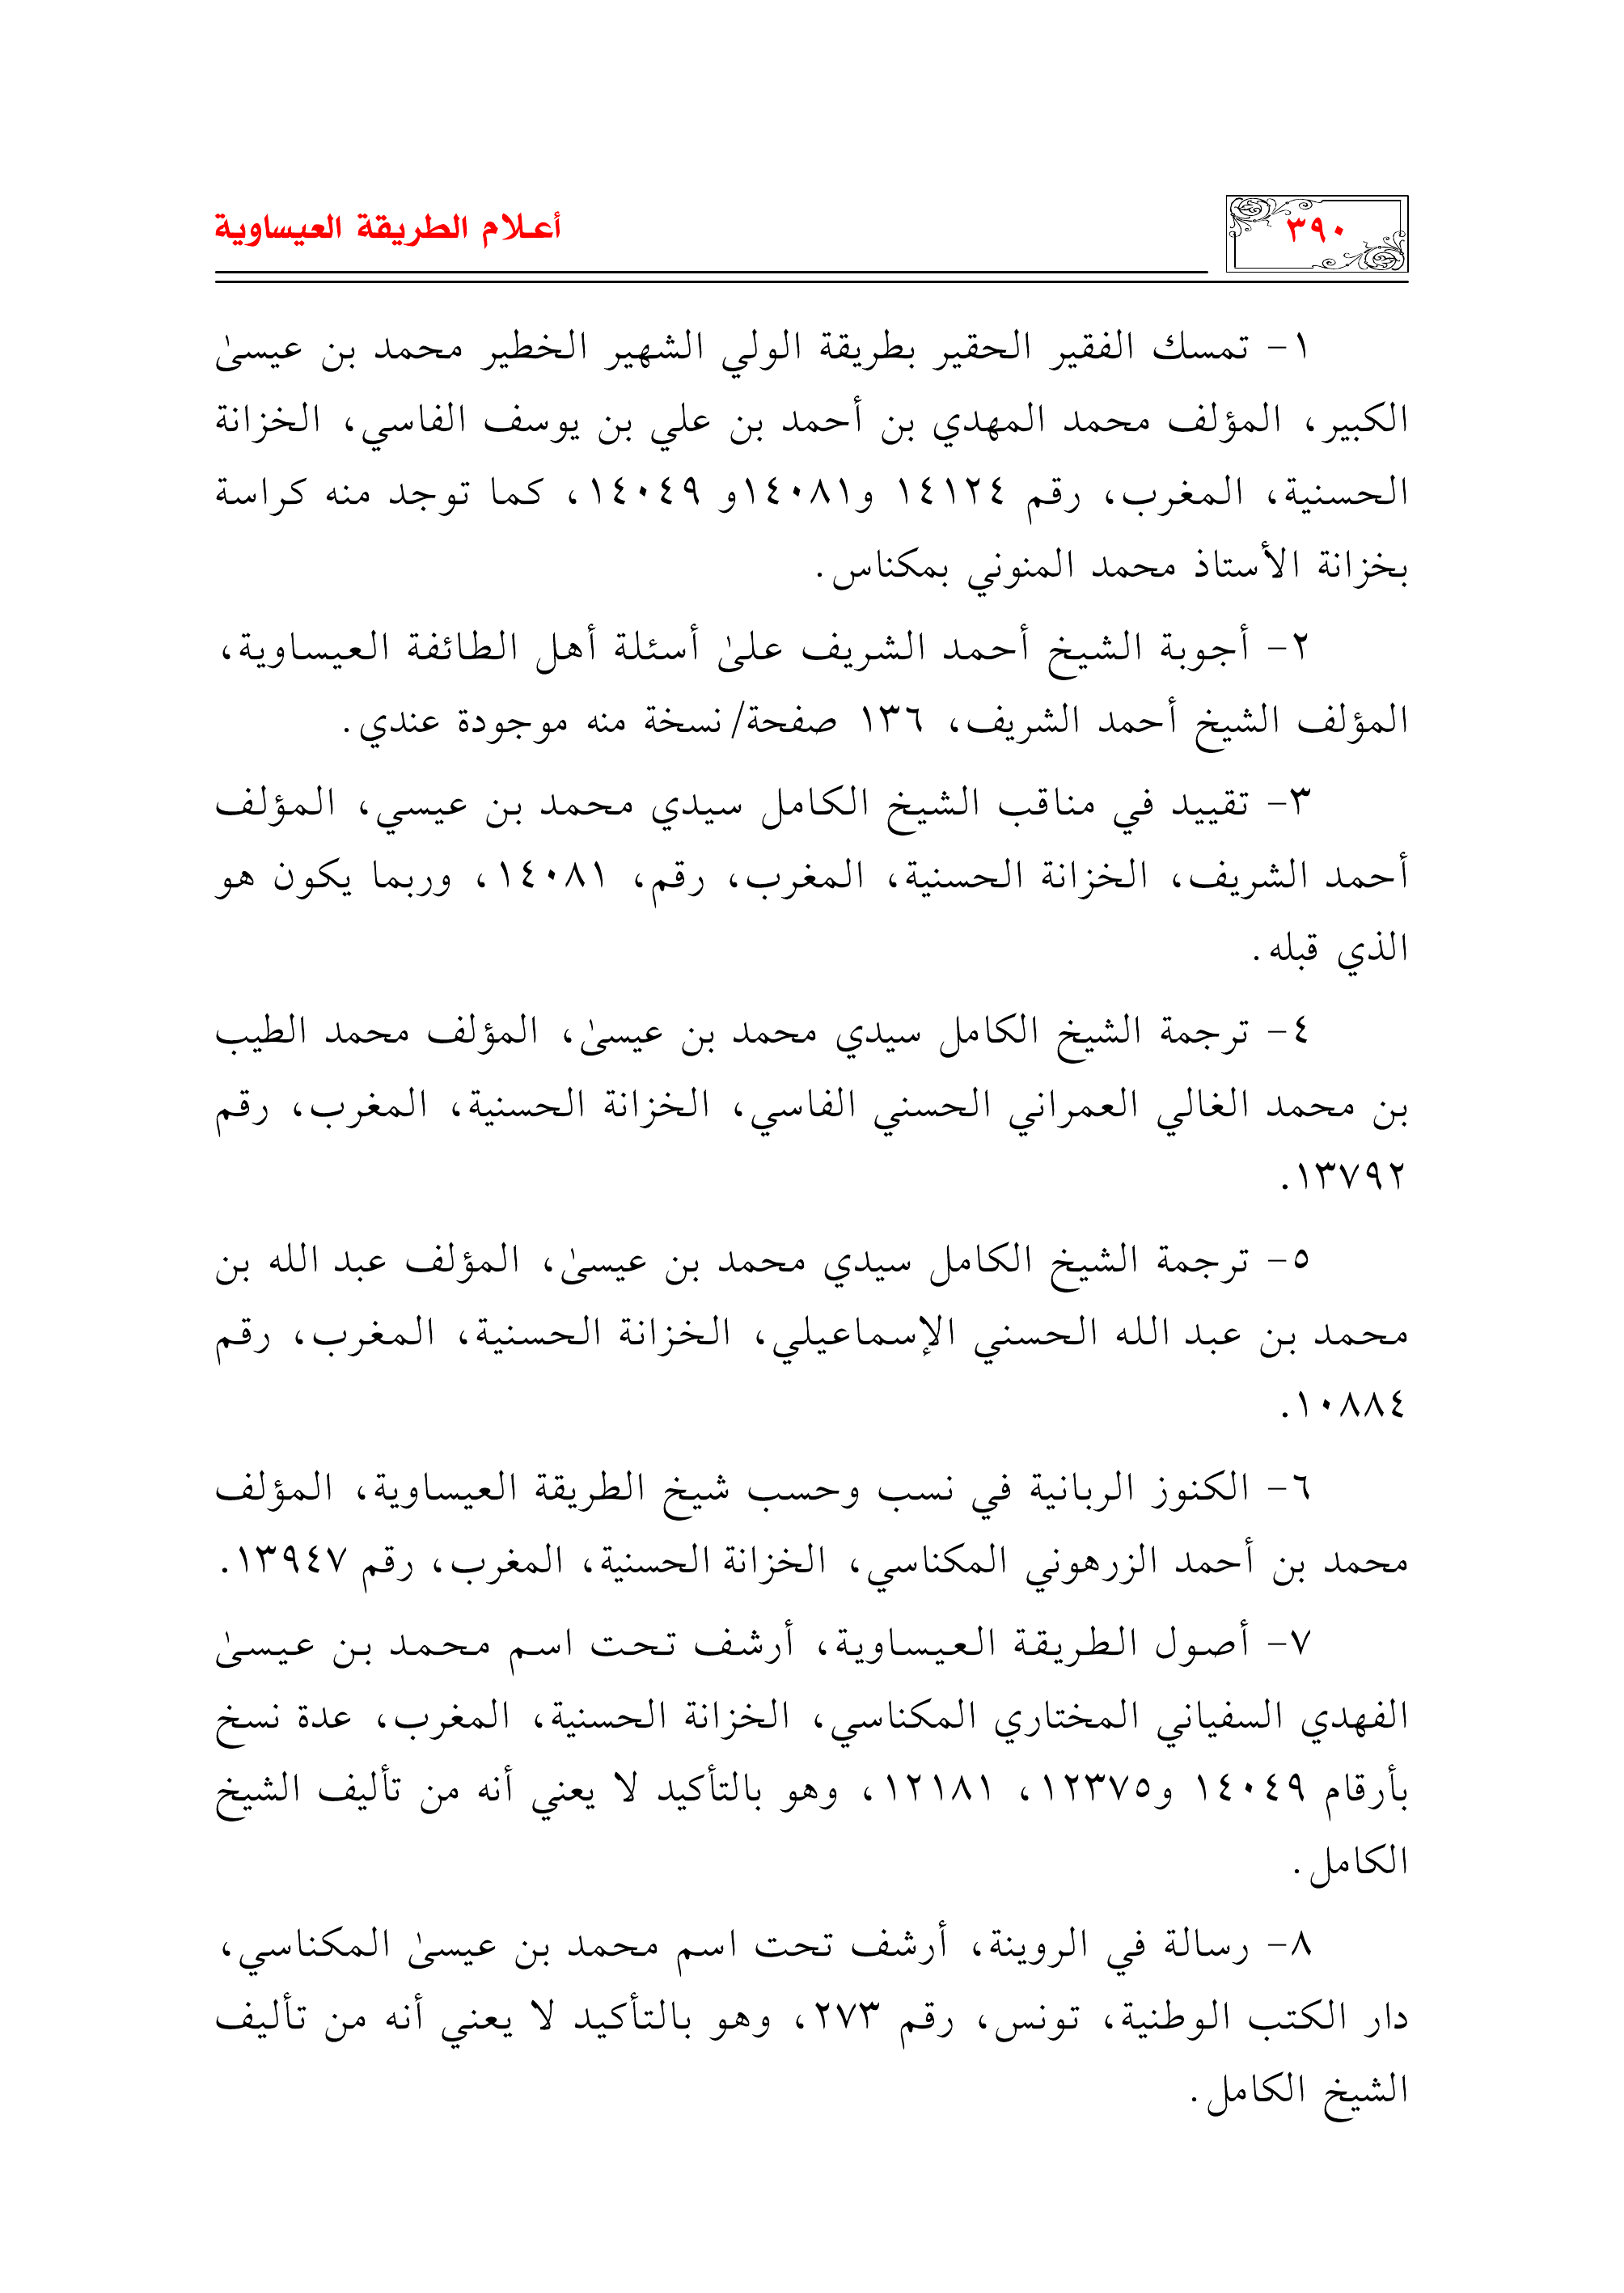 ٣٩٠
أعلام الطريقة العيساوية
١- تمسك الفقير الحقير بطريقة الولي الشهير الخطير محمد بن عيسىٰ
الكبير، المؤلف محمد المهدي بن أحمد بن علي بن يوسف الفاسي، الخزانة
الحسنية، المغرب، رقم ١٤١٢٤ و١٤٠٨١و ١٤٠٤٩، كما توجد منه كراسة
بخزانة الأستاذ محمد المنوني بمكناس.
٢- أجوبة الشيخ أحمد الشريف علىٰ أسئلة أهل الطائفة العيساوية،
المؤلف الشيخ أحمد الشريف، ١٣٦ صفحة/نسخة منه موجودة عندي.
٣- تقييد في مناقب الشيخ الكامل سيدي محمد بن عيسي، المؤلف
أحمد الشريف، الخزانة الحسنية، المغرب، رقم، ١٤٠٨١، وربما يكون هو
الذي قبله.
٤- ترجمة الشيخ الكامل سيدي محمد بن عيسىٰ، المؤلف محمد الطيب
بن محمد الغالي العمراني الحسني الفاسي، الخزانة الحسنية، المغرب، رقم
١٣٧٩٢.
٥- ترجمة الشيخ الكامل سيدي محمد بن عيسىٰ، المؤلف عبد الله بن
محمد بن عبد الله الحسني الإسماعيلي، الخزانة الحسنية، المغرب، رقم
١٠٨٨٤.
٦- الكنوز الربانية في نسب وحسب شيخ الطريقة العيساوية، المؤلف
محمد بن أحمد الزرهوني المكناسي، الخزانة الحسنية، المغرب، رقم ١٣٩٤٧.
٧- أصول الطريقة العيساوية، أرشف تحت اسم محمد بن عيسىٰ
الفهدي السفياني المختاري المكناسي، الخزانة الحسنية، المغرب، عدة نسخ
بأرقام ١٤٠٤٩ و١٢٣٧٥، ١٢١٨١، وهو بالتأكيد لا يعني أنه من تأليف الشيخ
الكامل.
٨- رسالة في الروينة، أرشف تحت اسم محمد بن عيسىٰ المكناسي،
دار الكتب الوطنية، تونس، رقم ٢٧٣، وهو بالتأكيد لا يعني أنه من تأليف
الشيخ الكامل.